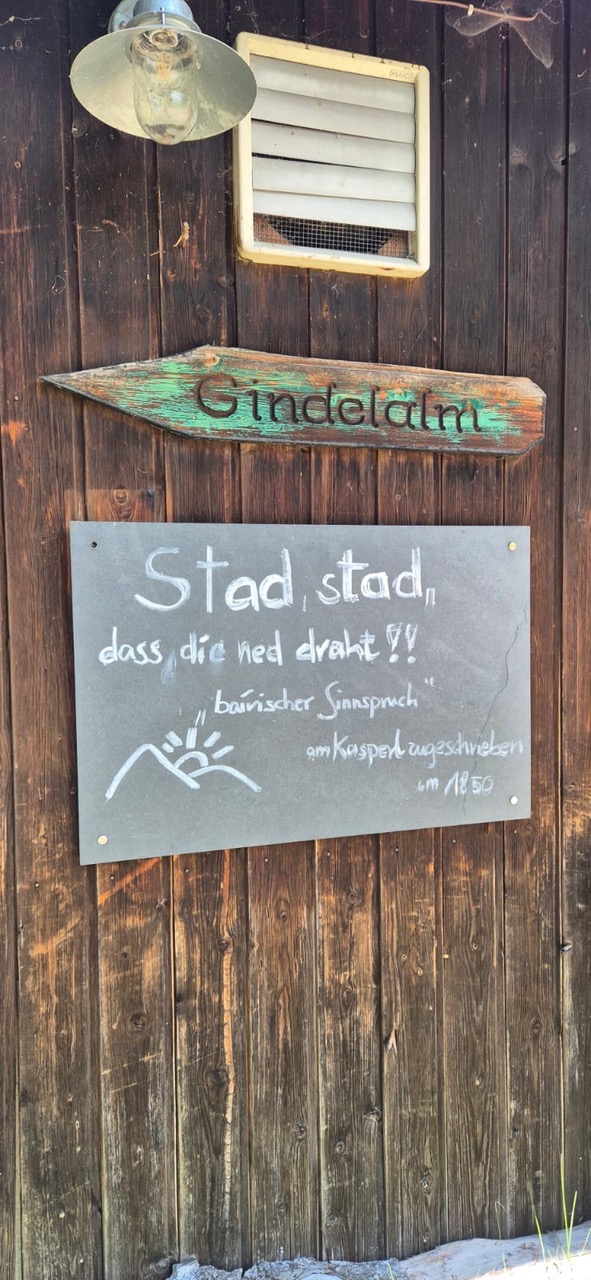 Gindelalm
Stad, stad,,
dass, die ned draht!!
„bairischer Sinnspruch“
am Kasperl zugeschrieben
um 1850